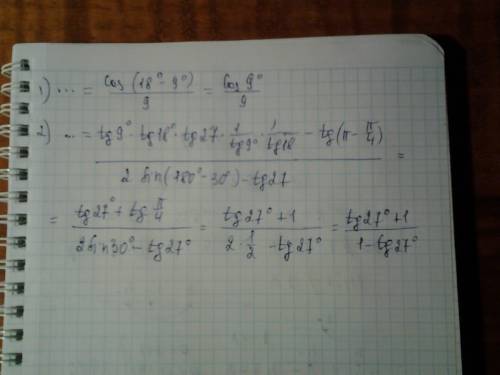 1) ... = cos(18° - 9°)/9 = cos 9°/9
2) ... = (tg9° · tg18° · tg27 · 1/tg9° · 1/tg18 - tg(π - π/4))/(2 sin(180° - 30°) - tg27) =
= (tg27° + tg π/4)/(2 sin30° - tg27°) = (tg27° + 1)/(2 · 1/2 - tg27°) = (tg27° + 1)/(1 - tg27°)